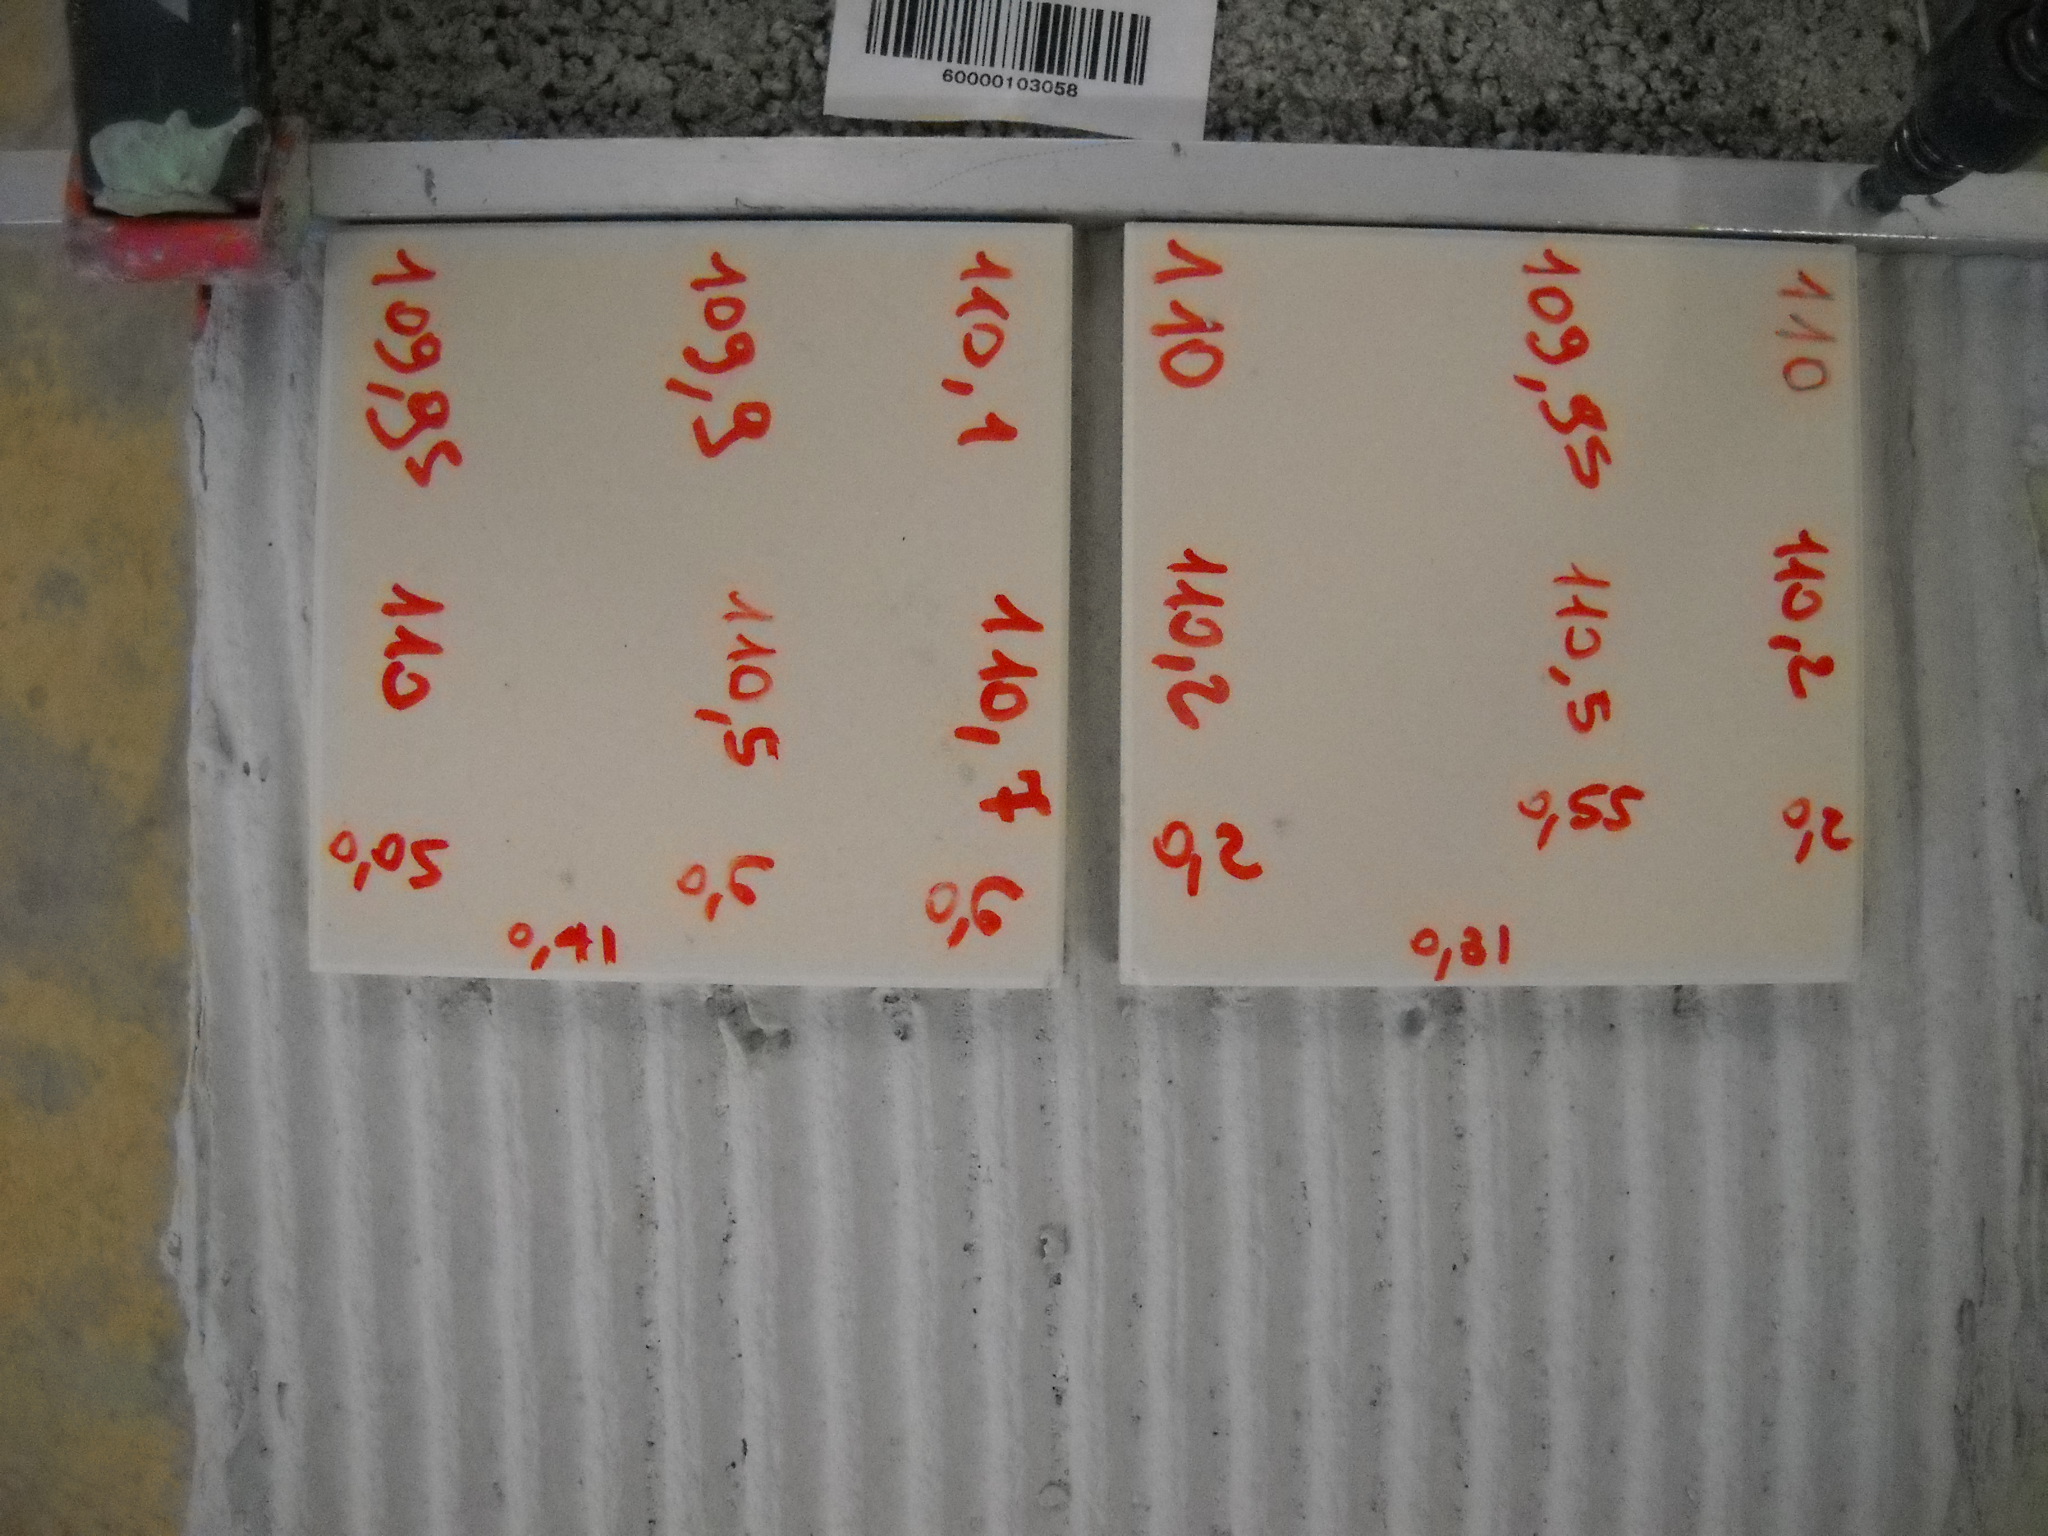 60000103058
109,95
109,9
110,1
110
110,5
110,7
0,05
0,6
0,6
0,41
110
109,95
110
110,2
110,5
110,2
0,2
0,55
0,2
0,31